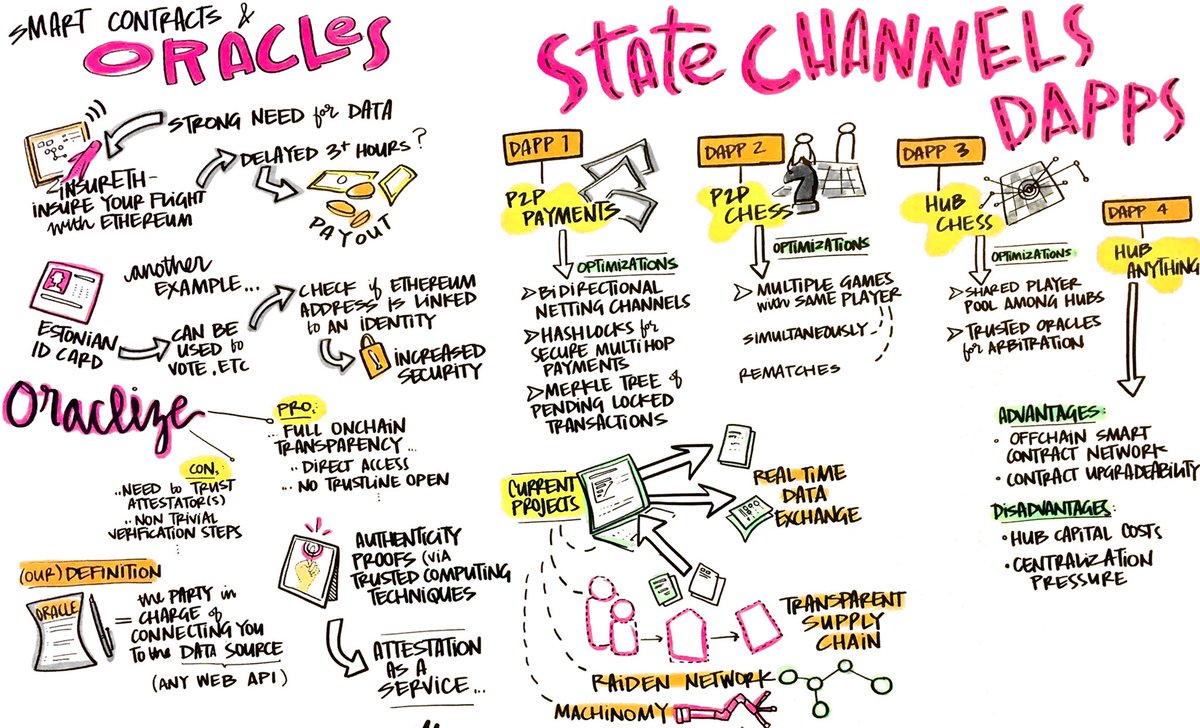 SMART CONTRACTS &
ORACLES
STRONG NEED for DATA
INSURETH-
INSURE YOUR FLIGHT
with ETHEREUM
DELAYED 3+ HOURS?
PAYOUT
another
EXAMPLE...
ESTONIAN
ID CARD
CAN BE
USED to
VOTE, ETC
CHECK if ETHEREUM
ADDRESS IS LINKED
to AN IDENTITY
INCREASED
SECURITY
Oraclize
PRO:
FULL ONCHAIN
TRANSPARENCY...
.. DIRECT ACCESS
... NO TRUSTLINE OPEN
CON:
...NEED to TRUST
ATTESTATOR(S)
.. NON TRIVIAL
VERIFICATION STEPS
(OUR) DEFINITION
ORACLE
= the PARTY in
CHARGE of
CONNECTING YOU
TO the DATA SOURCE
(ANY WEB API)
AUTHENTICITY
PROOFS (VIA
TRUSTED COMPUTING
TECHNIQUES
ATTESTATION
AS A
SERVICE...
STATE CHANNELS
DAPPS
DAPP 1
P2P
PAYMENTS
OPTIMIZATIONS
BIDIRECTIONAL
NETTING CHANNELS
HASHLOCKS for
SECURE MULTIHOP
PAYMENTS
MERKLE TREE of
PENDING LOCKED
TRANSACTIONS
DAPP 2
P2P
CHESS
OPTIMIZATIONS
MULTIPLE GAMES
with SAME PLAYER
SIMULTANEOUSLY
REMATCHES
DAPP 3
HUB
CHESS
OPTIMIZATIONS
SHARED PLAYER
POOL AMONG HUBS
TRUSTED ORACLES
for ARBITRATION
DAPP 4
HUB
ANYTHING
ADVANTAGES:
• OFFCHAIN SMART
CONTRACT NETWORK
• CONTRACT UPGRADEABILITY
DISADVANTAGES:
• HUB CAPITAL COSTS
• CENTRALIZATION
PRESSURE
CURRENT
PROJECTS
REAL TIME
DATA
EXCHANGE
TRANSPARENT
SUPPLY
CHAIN
RAIDEN NETWORK
MACHINOMY